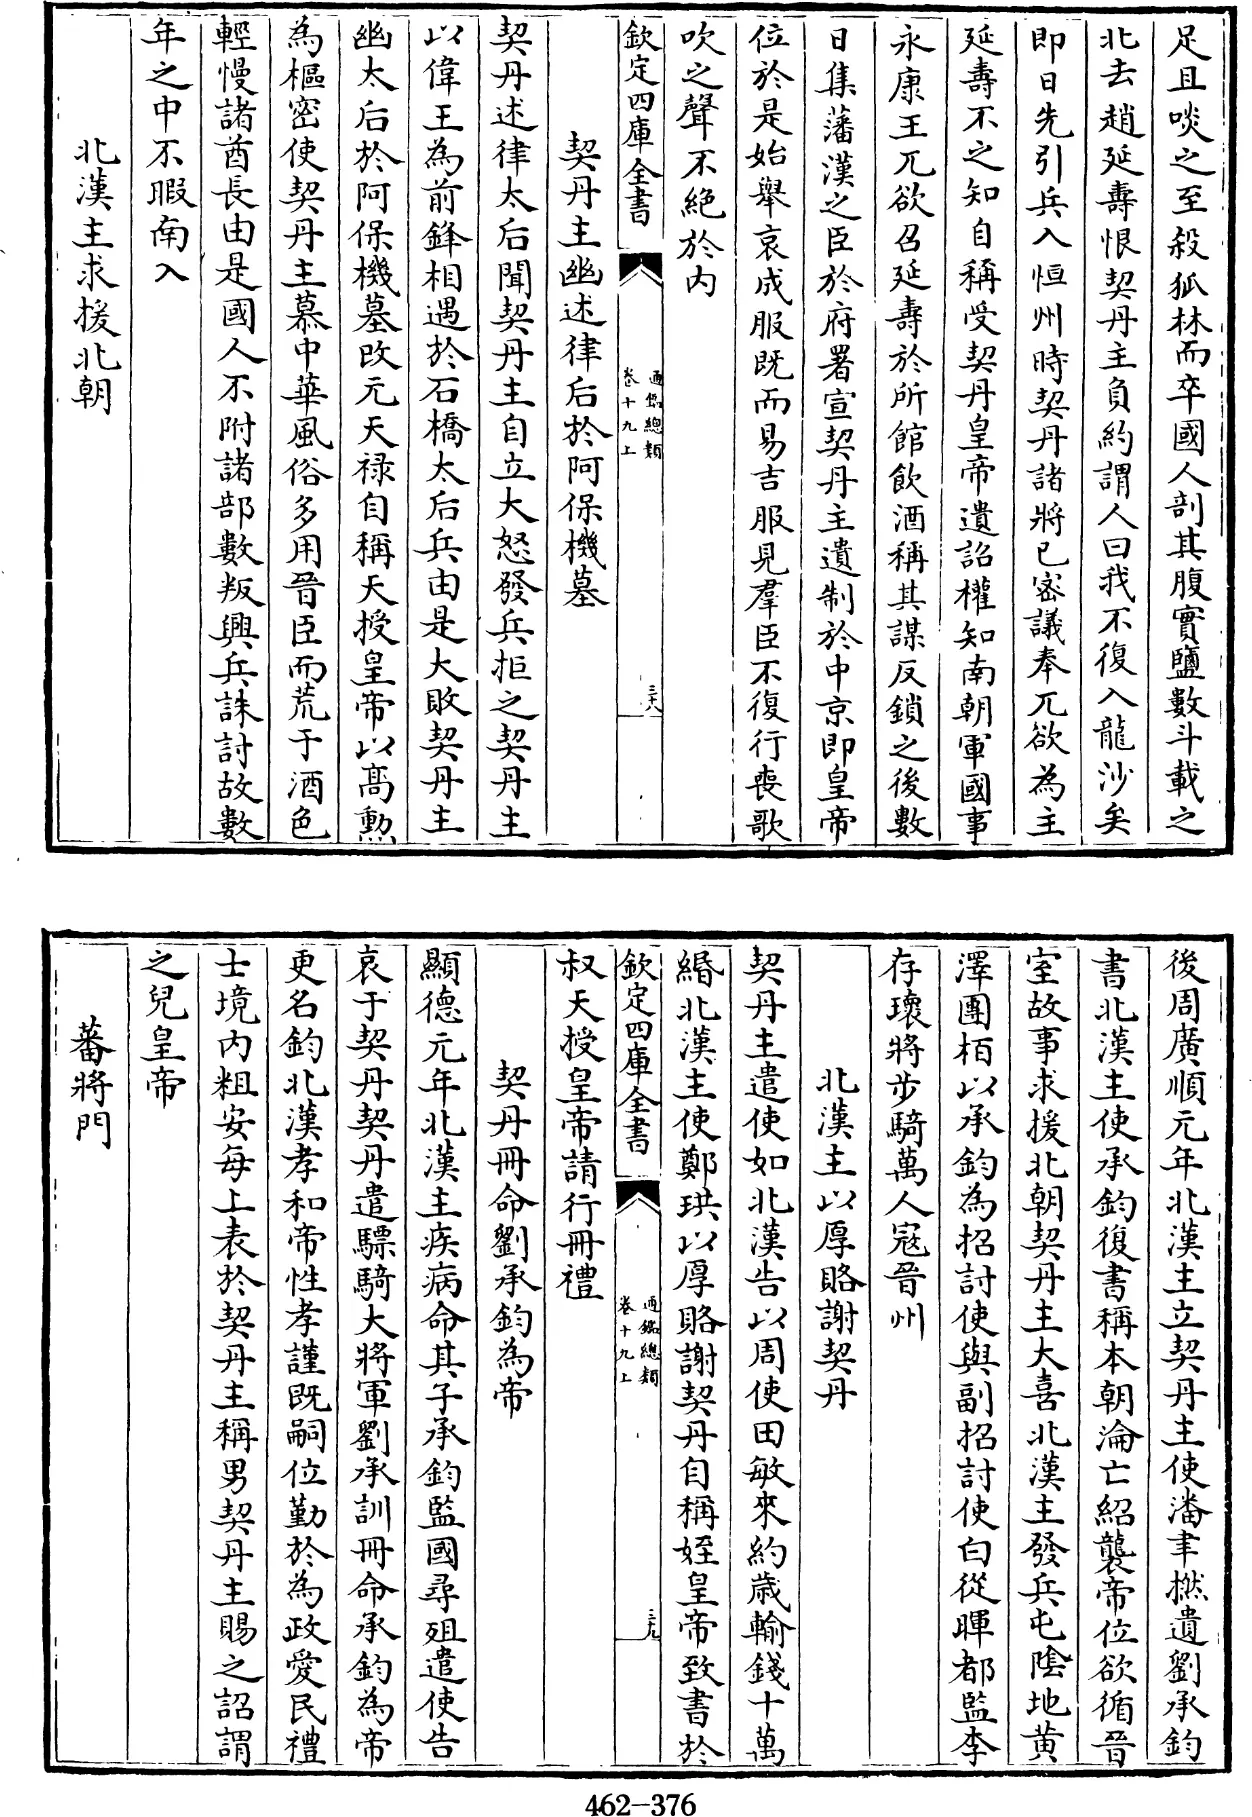 足且啖之至殺狐林而卒國人剖其腹實鹽數斗載之
北去趙延壽恨契丹主負約謂人曰我不復入龍沙矣
即日先引兵入恒州時契丹諸將已密議奉兀欲為主
延壽不之知自稱受契丹皇帝遺詔權知南朝軍國事
永康王兀欲召延壽於所館飲酒稱其謀反鎖之後數
日集藩漢之臣於府署宣契丹主遺制於中京即皇帝
位於是始舉哀成服既而易吉服見羣臣不復行喪歌
吹之聲不絶於内
欽定四庫全書
通鑑總類
卷十九上
三十八
契丹主幽述律后於阿保機墓
契丹述律太后聞契丹主自立大怒發兵拒之契丹主
以偉王為前鋒相遇於石橋太后兵由是大敗契丹主
幽太后於阿保機墓改元天禄自稱天授皇帝以髙勲
為樞密使契丹主慕中華風俗多用晉臣而荒于酒色
輕慢諸酋長由是國人不附諸部數叛興兵誅討故數
年之中不暇南入
北漢主求援北朝
後周廣順元年北漢主立契丹主使潘聿撚遺劉承鈞
書北漢主使承鈞復書稱本朝淪亡紹襲帝位欲循晉
室故事求援北朝契丹主大喜北漢主發兵屯陰地黄
澤團栢以承鈞為招討使與副招討使白從暉都監李
存瓌將步騎萬人冦晉州
北漢主以厚賂謝契丹
契丹主遣使如北漢告以周使田敏來約歳輸錢十萬
緡北漢主使鄭珙以厚賂謝契丹自稱姪皇帝致書於
欽定四庫全書
通鑑總類
卷十九上
三十九
叔天授皇帝請行冊禮
契丹冊命劉承鈞為帝
顯德元年北漢主疾病命其子承鈞監國尋殂遣使告
哀于契丹契丹遣驃騎大將軍劉承訓冊命承鈞為帝
更名鈞北漢孝和帝性孝謹既嗣位勤於為政愛民禮
士境内粗安每上表於契丹主稱男契丹主賜之詔謂
之兒皇帝
蕃將門
462-376